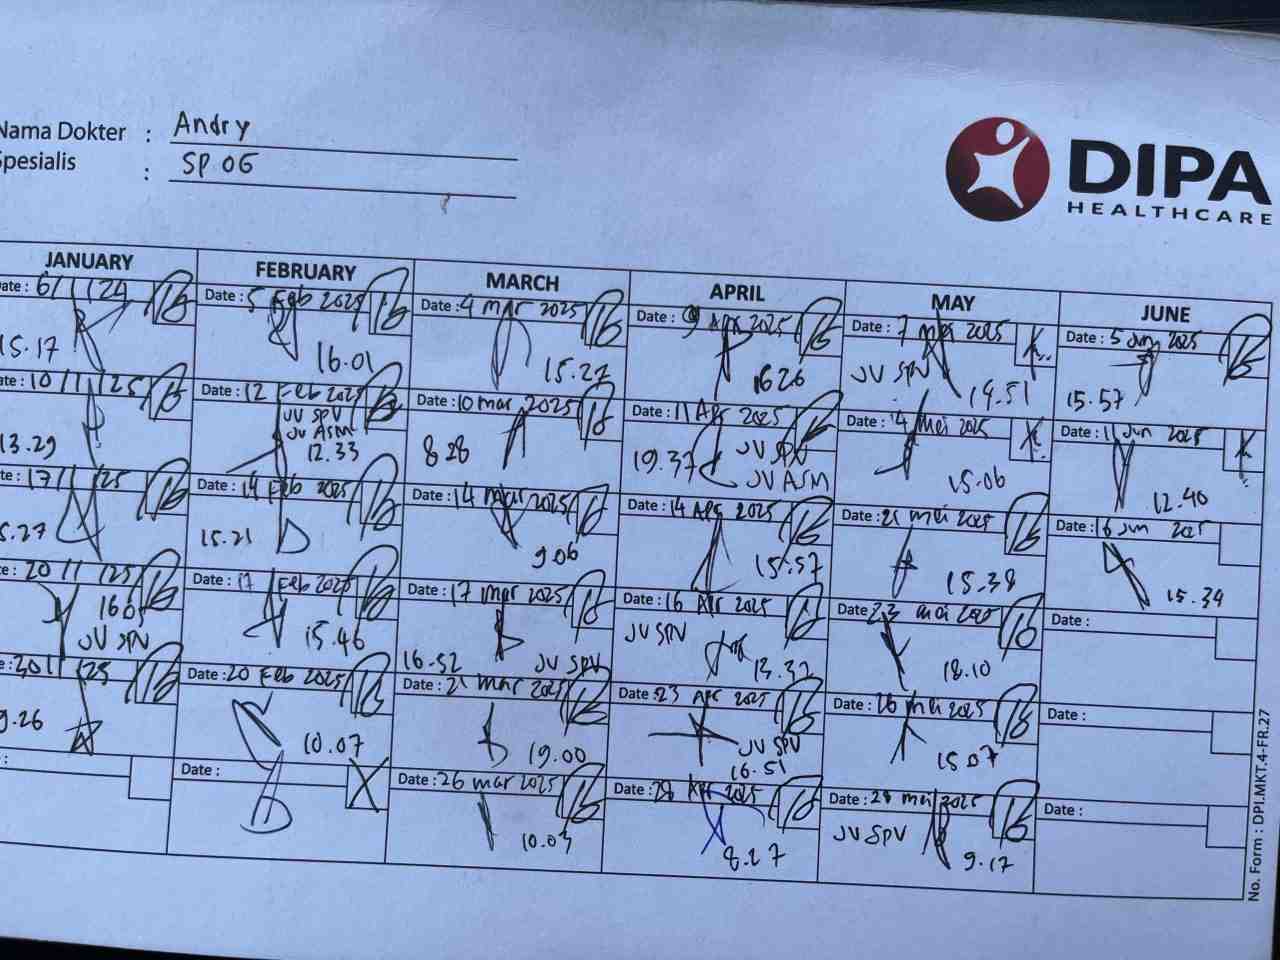 Nama Dokter : Andry
Spesialis : SP OG
DIPA
HEALTHCARE
JANUARY
ate: 6/1/24
15.17
ate: 10/1/25
13.29
te: 17/1/25
5.27
te: 20/1/25
1605
JV SPV
e: 30/1/25
9.26
:
FEBRUARY
Date: 5 Feb 2025
16.01
Date: 12 Feb 2025
JV SPV
JV ASM
12.33
Date: 14 Feb 2025
15.21
Date: 17 Feb 2025
15.46
Date: 20 Feb 2025
10.07
Date:
MARCH
Date: 4 mar 2025
15.27
Date: 10 mar 2025
828
Date: 14 mar 2025
906
Date: 17 mar 2025
16.52 JV SPV
Date: 21 mar 2025
19.00
Date: 26 mar 2025
10.03
APRIL
Date: 9 Apr 2025
1626
Date: 11 Apr 2025
19.37 JV SPV
JV ASM
Date: 14 Apr 2025
15.57
Date: 16 Apr 2025
JV SPV
13.37
Date: 23 Apr 2025
JV SPV
16.51
Date: 28 Apr 2025
8.27
MAY
Date: 7 mei 2025
JV SPV
14.51
Date: 14 mei 2025
15.06
Date: 21 mei 2025
15.38
Date: 23 mei 2025
18.10
Date: 26 mei 2025
15.07
Date: 28 mei 2025
JV SPV
9.17
JUNE
Date: 5 Jun 2025
15.57
Date: 11 Jun 2025
12.40
Date: 16 Jun 2025
15.34
Date:
Date:
Date:
No. Form : DPI.MKT.4-FR.27